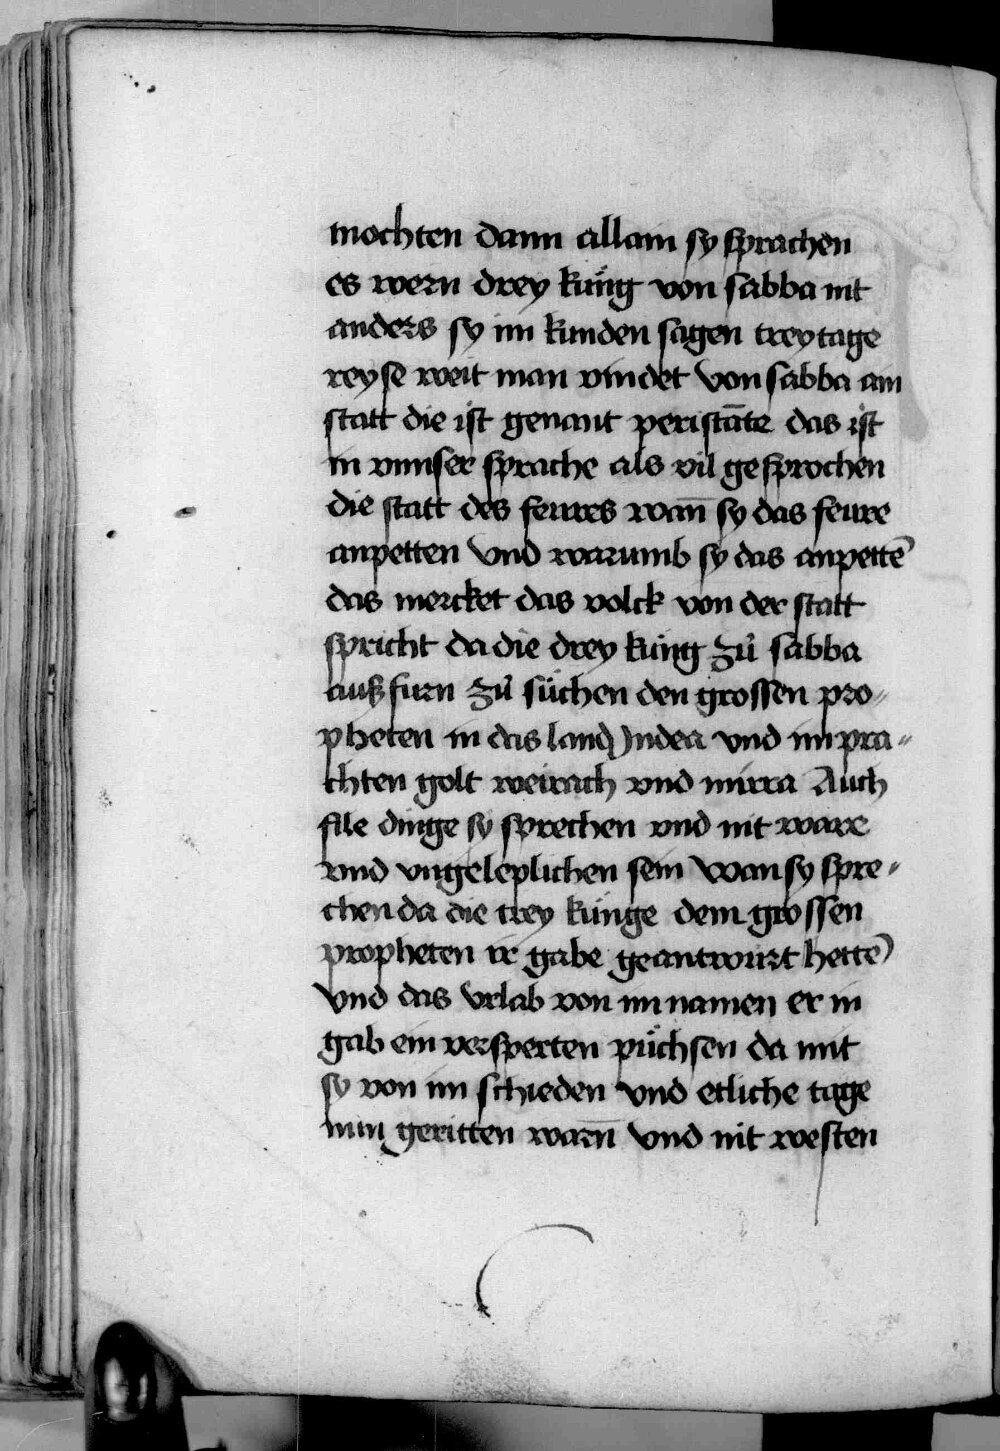 mochten dann allain sy sprachen
es wern drey kűng von sabba nit
anders sy im kunden sagen trey tage
reyse weit man vindet von sabba ain
statt die ist genant peristāte das ist
in vnnser sprache als vil gesprochen
die statt des feures wan̄ sy das feure
anpetten vnd warumb sy das anpettē
das mercket das volck von der statt
spricht da die drey kűng zů sabba
auß furn zů sűchen den grossen pro-
pheten in das land Judea vnd im pra-
chten golt weirach vnd mirra Auch
file dinge sy sprechen vnd nit ware
vnd vngeleplichen sein wan sy spre-
chen da die trey kúnge dem grossen
propheten ir gabe geantwurt hettē
vnd das vrlab von im namen er in
gab ein versperten pűchsen da mit
sy von im schieden vnd etliche tage
nun geritten warn̄ vnd nit westen